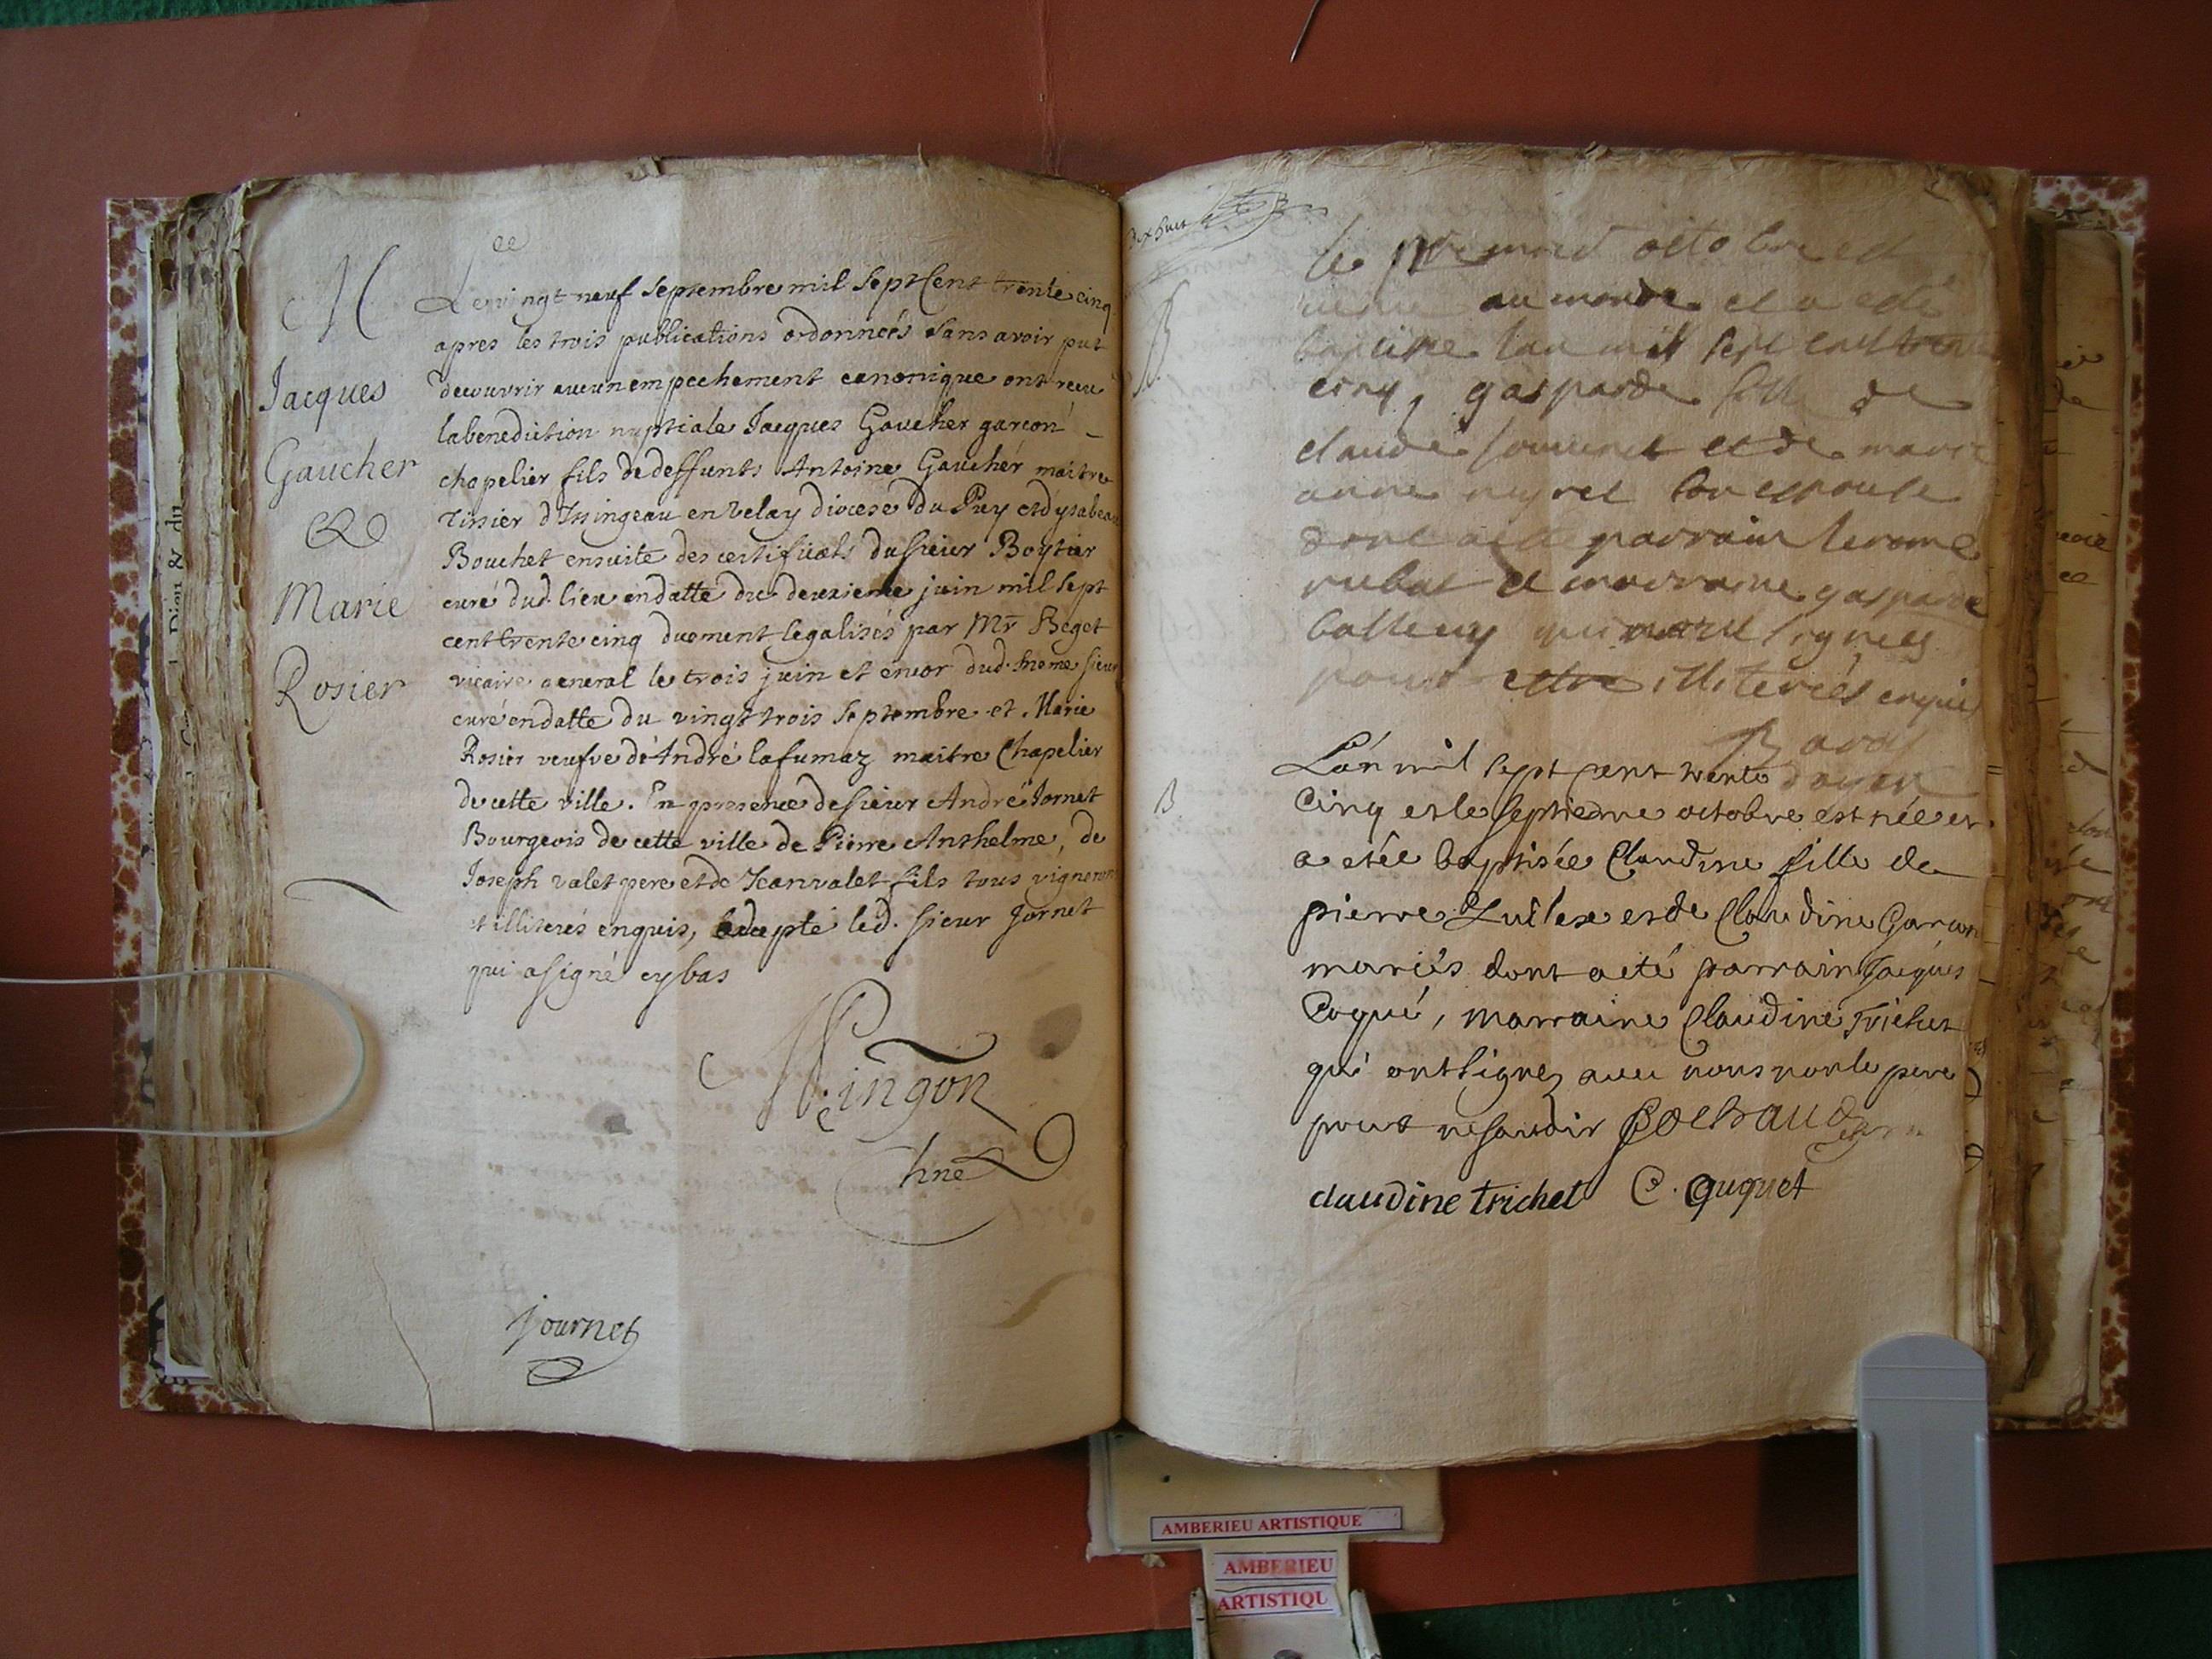 M
Jacques
Gaucher
&
Marie
Rosier
Le vingt neuf septembre mil sept Cent trente cinq
apres les trois publications ordonneés sans avoir put
decouvrir aucun empechement canonique ont receu
la benediction nuptiale Jacques Gaucher garcon
chapelier fils de deffunts Antoine Gaucher maitre
tissier d'Issingeau en Velay diocese du Puy et d'ysabeau
Bouchet ensuite des certificats du sieur Boytier
curé dud. lieu en datte du deuxieme juin mil sept
cent trente cinq duement legalisés par Mr Beget
vicaire general le trois juin et encor dud. meme sieur
curé en datte du vingt trois septembre et Marie
Rosier veufve de André lafumaz maitre Chapelier
de cette ville. En presence de sieur André Jornet
Bourgeois de cette ville de Pierre Anthelme, de
Joseph valet pere et de Jean valet fils tous vignerons
et illiterés enquis, led. sieur Jornet
qui a signé cy bas
Mingon
journet
B
le octobre est
venu au monde et a esté
baptisée lan mil sept cent trente
cinq gasparde fille de
claude et de marie
anne neyret son espouse
dont a esté parrain
rubat et marraine gasparde
signes
pour estre illiterés enquis
B
L'an mil sept cent trente
Cinq et le septiesme octobre est née et
a etée baptisée Claudine fille de
pierre et de Claudine Garcon
mariés dont a eté parrain Jacques
Coqué, marraine Claudine Trichet
qui ont signez avec nous non le pere
pour ne scavoir Cochaud
claudine trichet C. Ququet
AMBERIEU ARTISTIQUE
AMBERIEU
ARTISTIQU